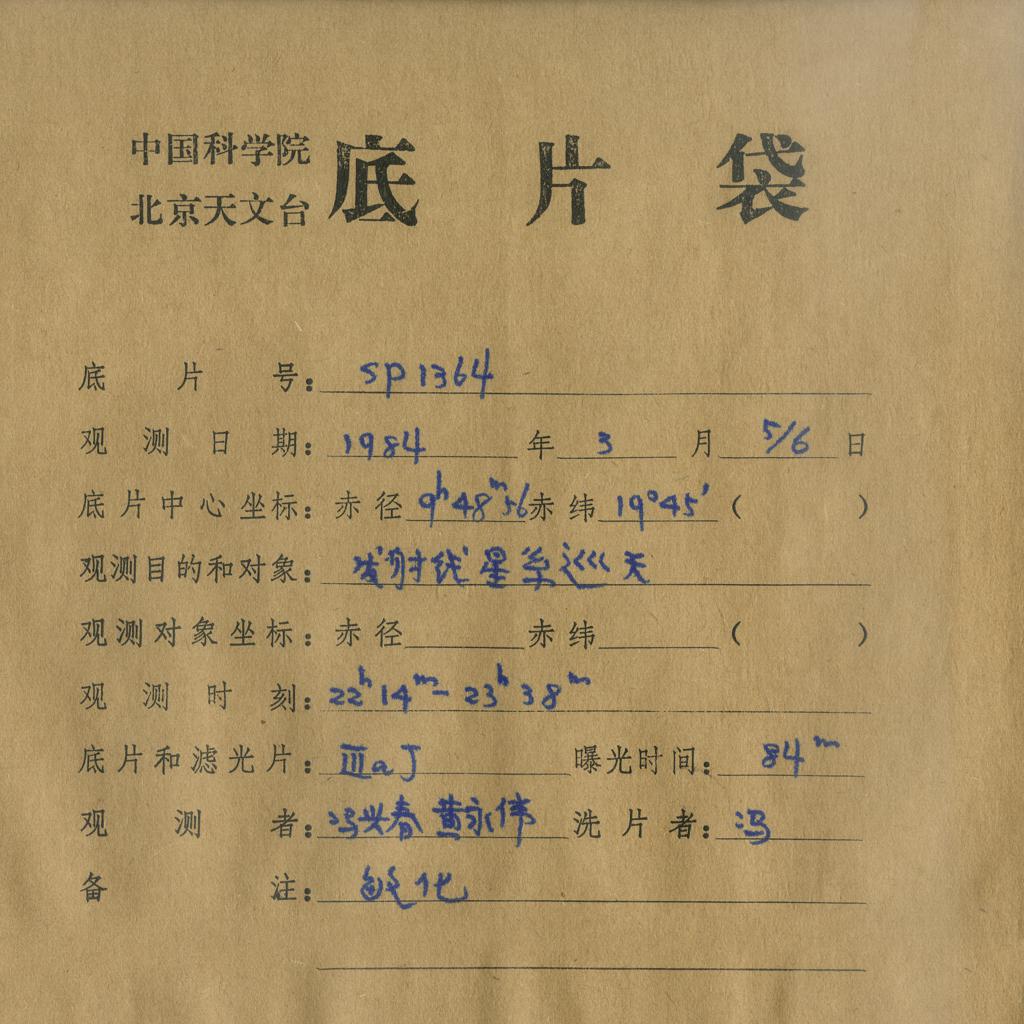 中国科学院
北京天文台 底片袋
底片号: SP1364
观测日期: 1984年3月5/6日
底片中心坐标: 赤径 9ʰ48ᵐ56 赤纬 19°45′ ( )
观测目的和对象: 发射线星系巡天
观测对象坐标: 赤径 赤纬 ( )
观测时刻: 22ʰ14ᵐ-23ʰ38ᵐ
底片和滤光片: ⅢaJ 曝光时间: 84ᵐ
观测者: 冯兴春 黄永伟 洗片者: 冯
备注: 敏化